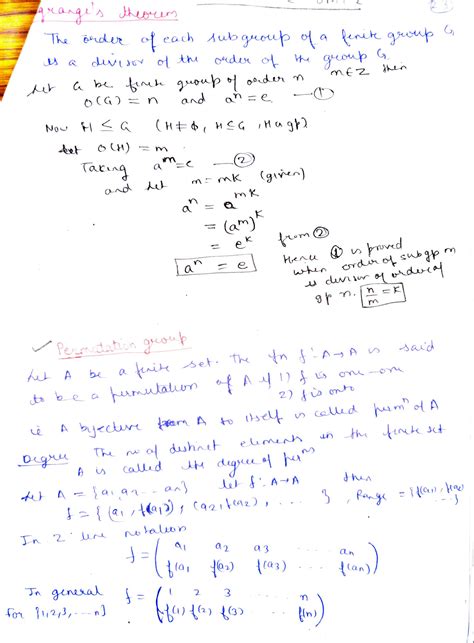 grange's theorem
The order of each subgroup of a finite group G
is a divisor of the order of the group G.
Let G be finite group of order n n∈Z then
O(G) = n and aⁿ = e — ①
Now H ≤ G (H ≠ ϕ, H ⊆ G, H is a gp)
Let O(H) = m
Taking aᵐ = e — ②
and let n = mk (given)
aⁿ = a^{mk}
= (aᵐ)ᵏ
= eᵏ from ②
aⁿ = e
Hence ① is proved
when order of subgp m
is divisor of order of
gp n. n/m = k
✓ Permutation group
Let A be a finite set. The fn f: A→A is said
to be a permutation of A if 1) f is one-one
2) f is onto
ie A bijective from A to itself is called permⁿ of A
Degree The no of distinct elements in the finite set
A is called the degree of permⁿ
Let A = {a₁, a₂ ... aₙ} let f: A→A then
f = {(a₁, f(a₁)), (a₂, f(a₂)), ... }, Range = {f(a₁), f(a₂)
...}
In 2-line notation
f = ( a₁ a₂ a₃ ... aₙ
f(a₁ f(a₂) f(a₃) ... f(aₙ) )
In general f = ( 1 2 3 ... n
for {1,2,3, ... n} f(1) f(2) f(3) ... f(n) )